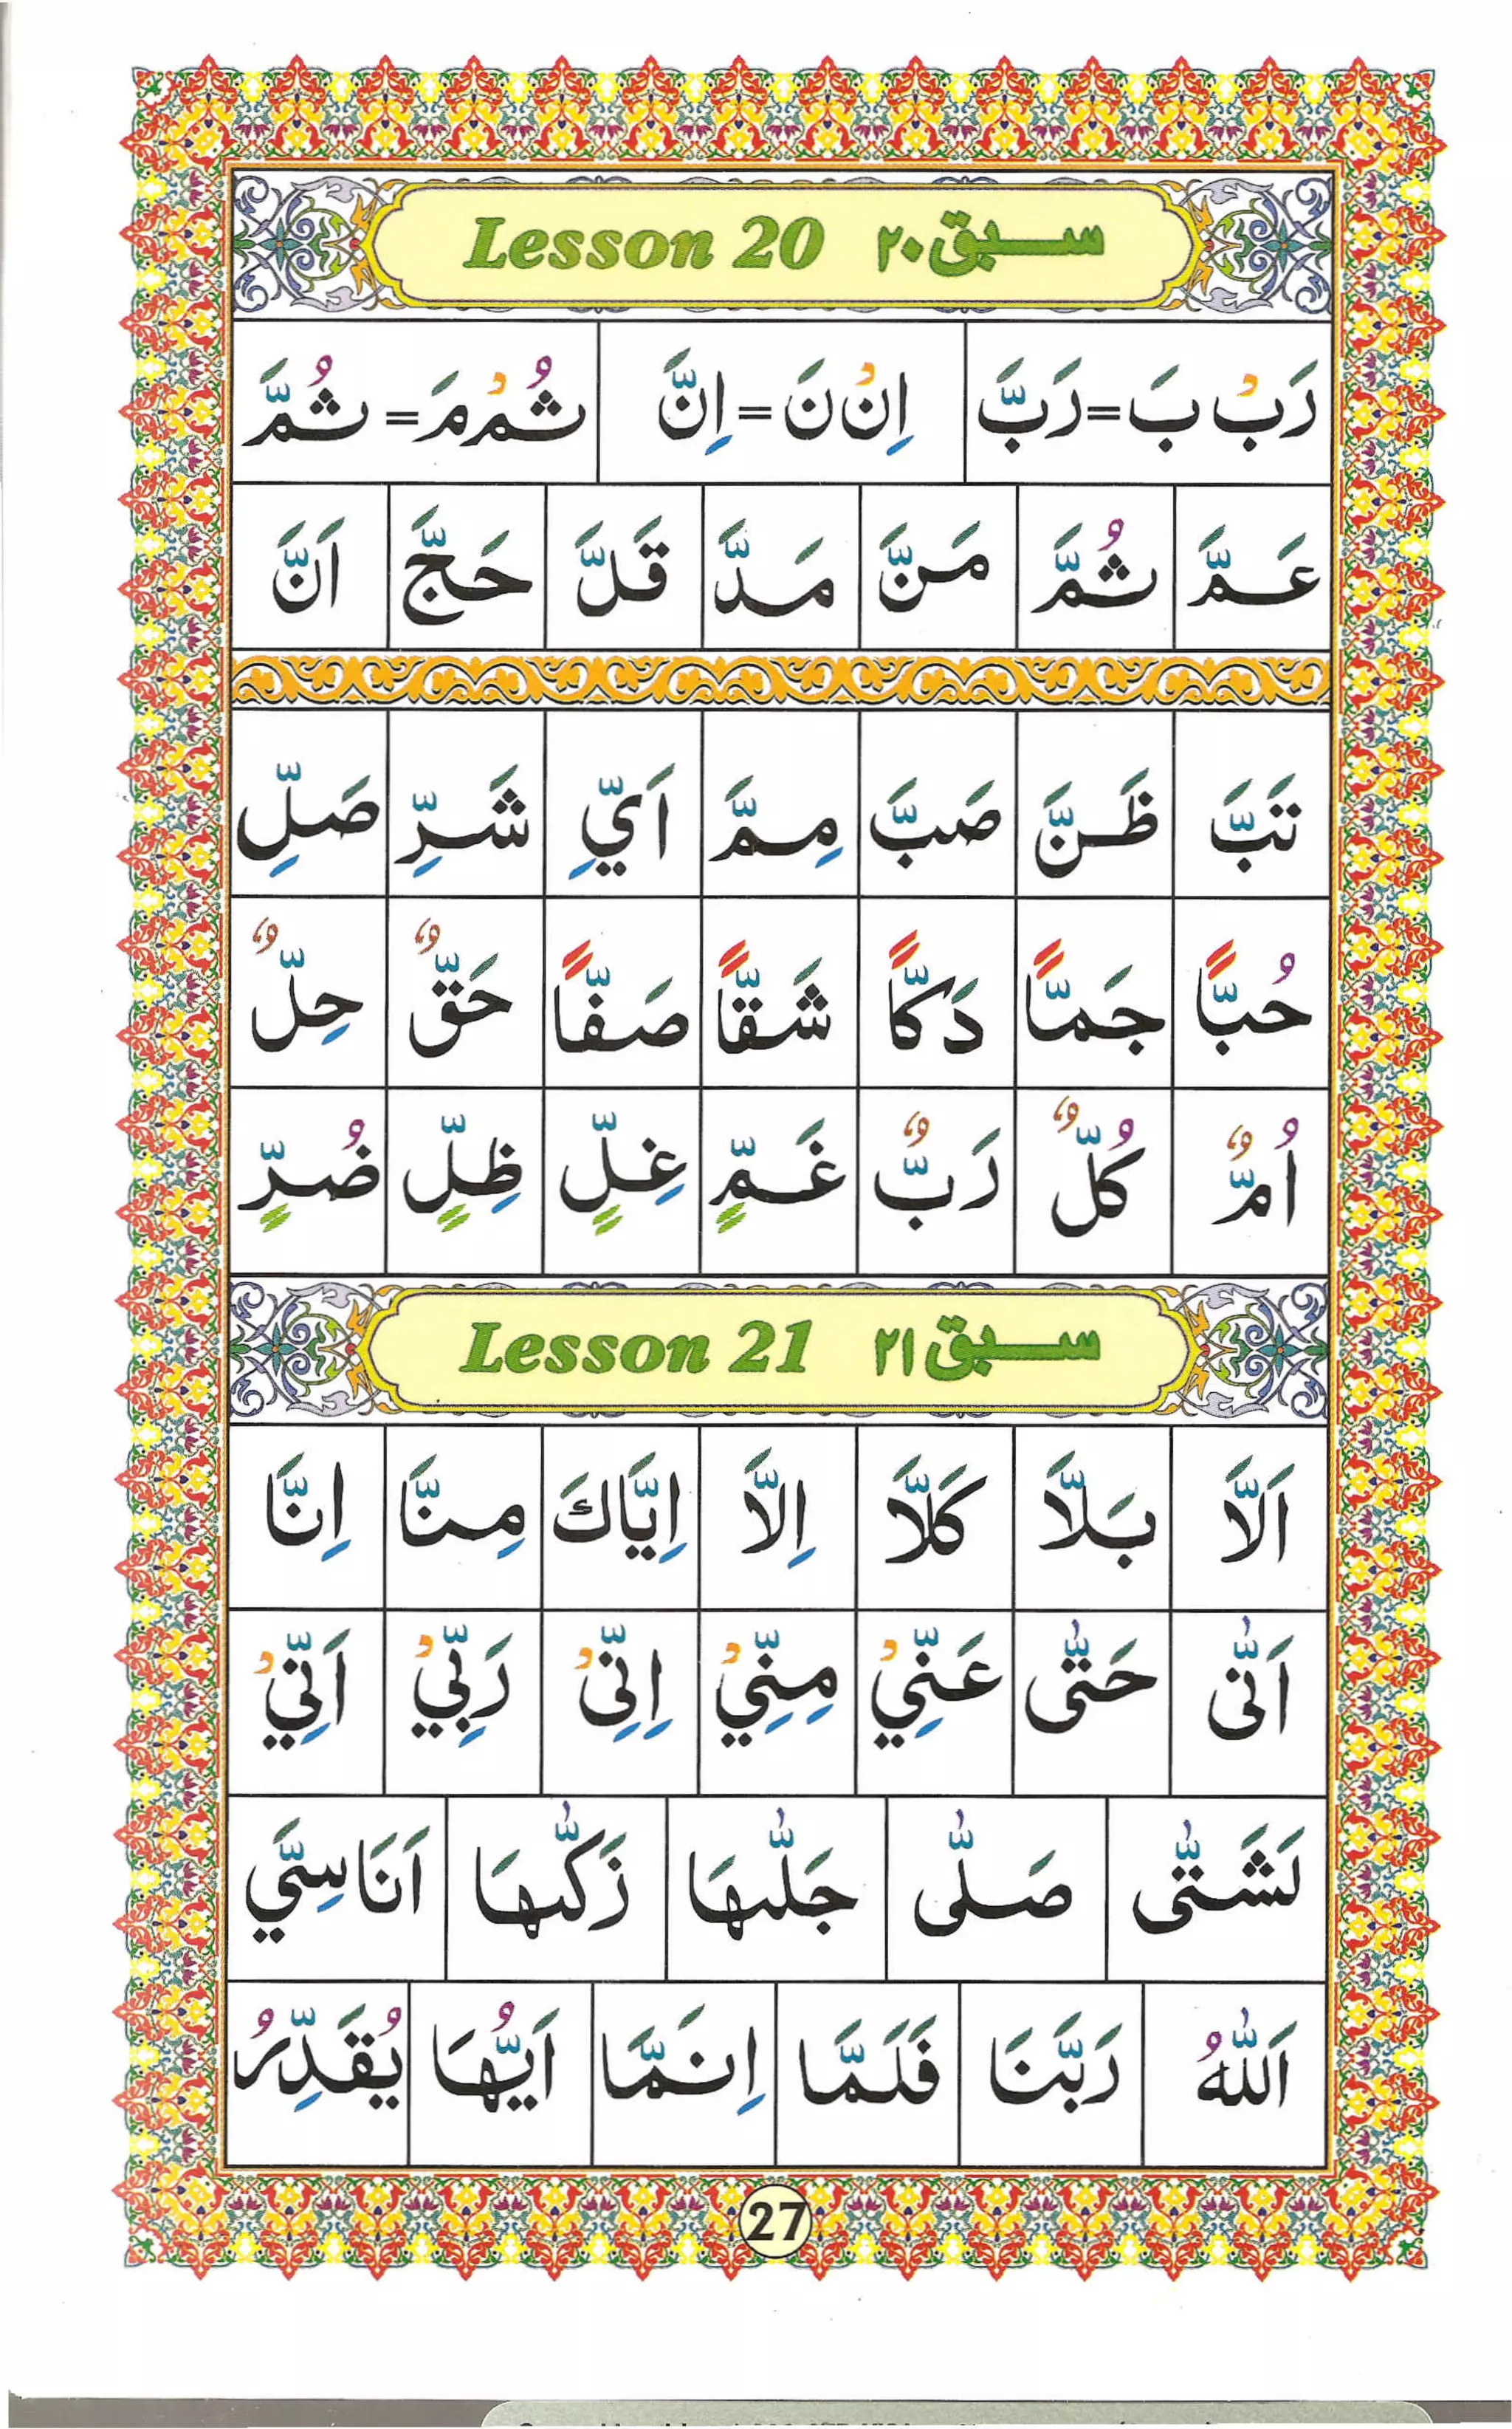 Lesson 20 سبق ۲۰
رَبْ بَ = رَبَّ اِنْ نَ = اِنَّ ثُمْ مَ = ثُمَّ
عَمَّ ثُمَّ مَنَّ مَدَّ قَلَّ حَجَّ اَنَّ
تَبَّ ظَنَّ صَبَّ مِمَّ اَيِّ شَرِّ صَلِّ
حُبًّا جَمًّا دَكًّا شَقًّا صَفًّا حَقٌّ حِلٌّ
اُمٌّ كُلٌّ رَبٌّ غَمٍّ غِلٍّ ظِلٍّ ضُرٍّ
Lesson 21 سبق ۲۱
اَلَّا بَلَّا كَلَّا اِلَّا اِيَّاكَ مِنَّا اِنَّا
اَنّٰى حَتّٰى عَنِّيْ مِنِّيْ اِنِّىْ رَبِّيْ اَنِّيْ
لَشَتّٰى صَلّٰى جَلّٰىهَا زَكّٰىهَا اَنَاسِيَّ
اَللّٰهُ رَبَّنَا فَلَمَّا اِنَمَّا اَيُّهَا يُقَدِّرُ
27